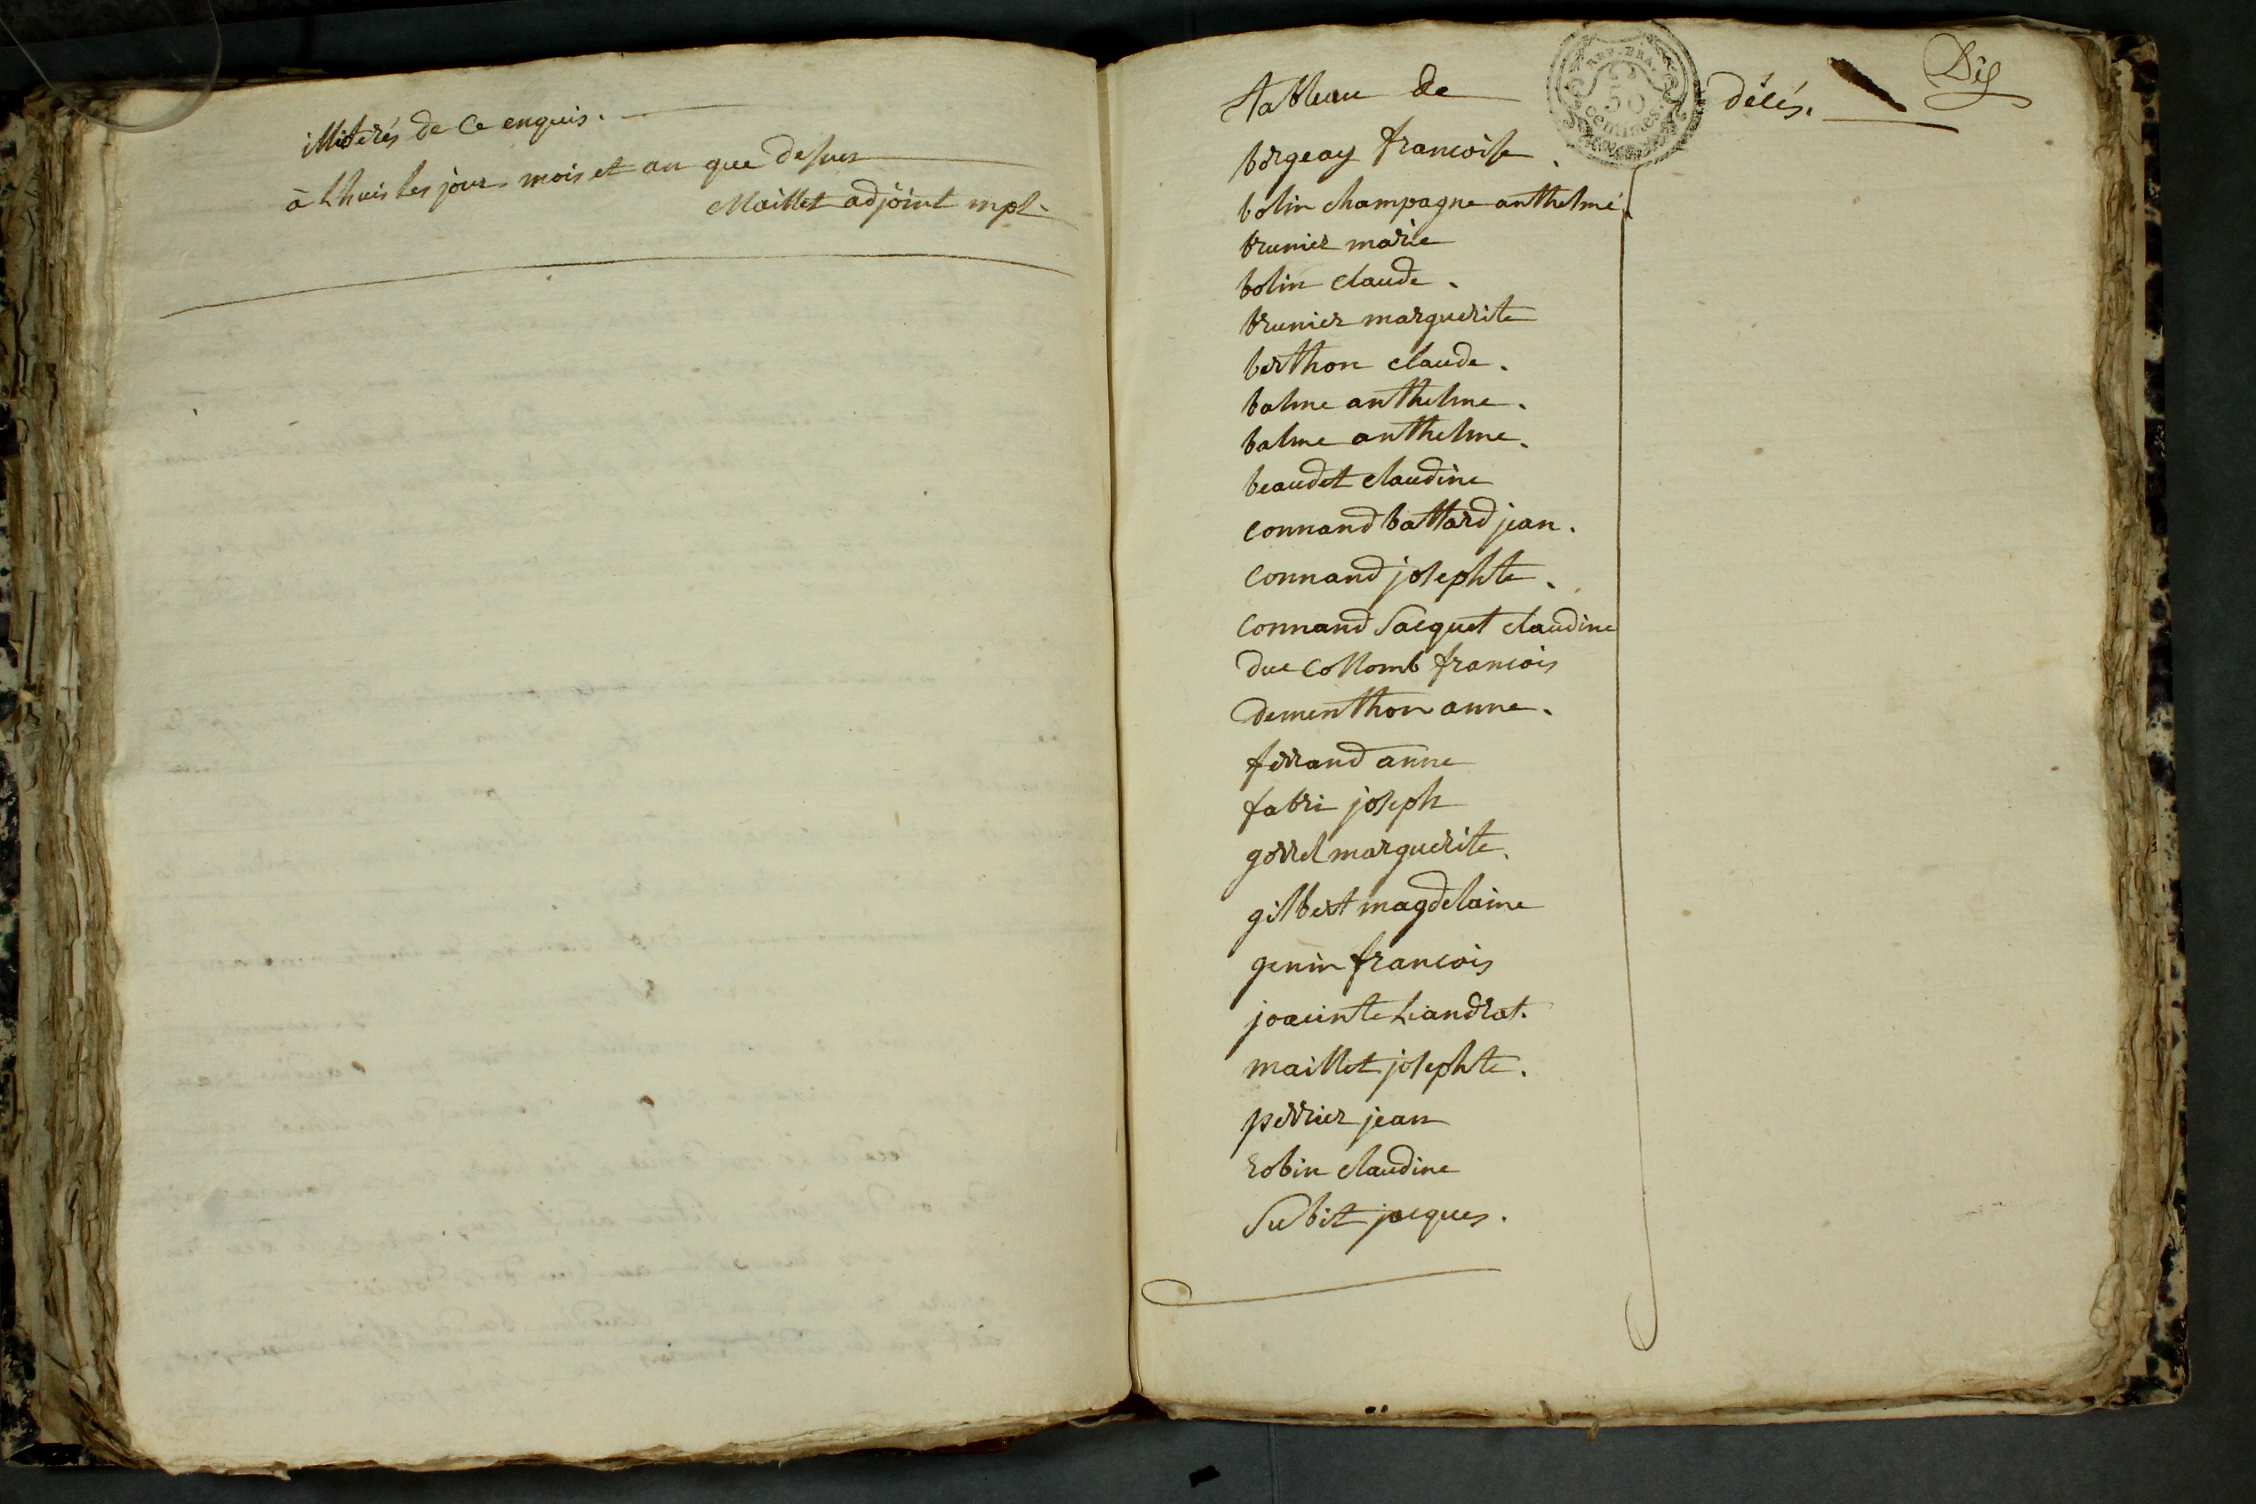 illiterés de ce enquis.
à Lhuis les jour mois et an que dessus
Maillet adjoint mpl
tableau de décés. Dix
REP. FRA.
50
centimes.
borgeay francoise.
bolin champagne anthelme.
brunier marie
bolin claude.
brunier marguerite
berthon claude.
balme anthelme.
balme anthelme.
beaudet claudine
connand battard jean.
connand josephte.
connand Sacquet claudine
duc collomb francois
dementhon anne.
ferrand anne
fabri joseph
gorrel marguerite.
gilbert magdelaine
genin francois
joacinte Liandrat.
maillet josephte.
perrier jean
robin claudine
Subit jacques.